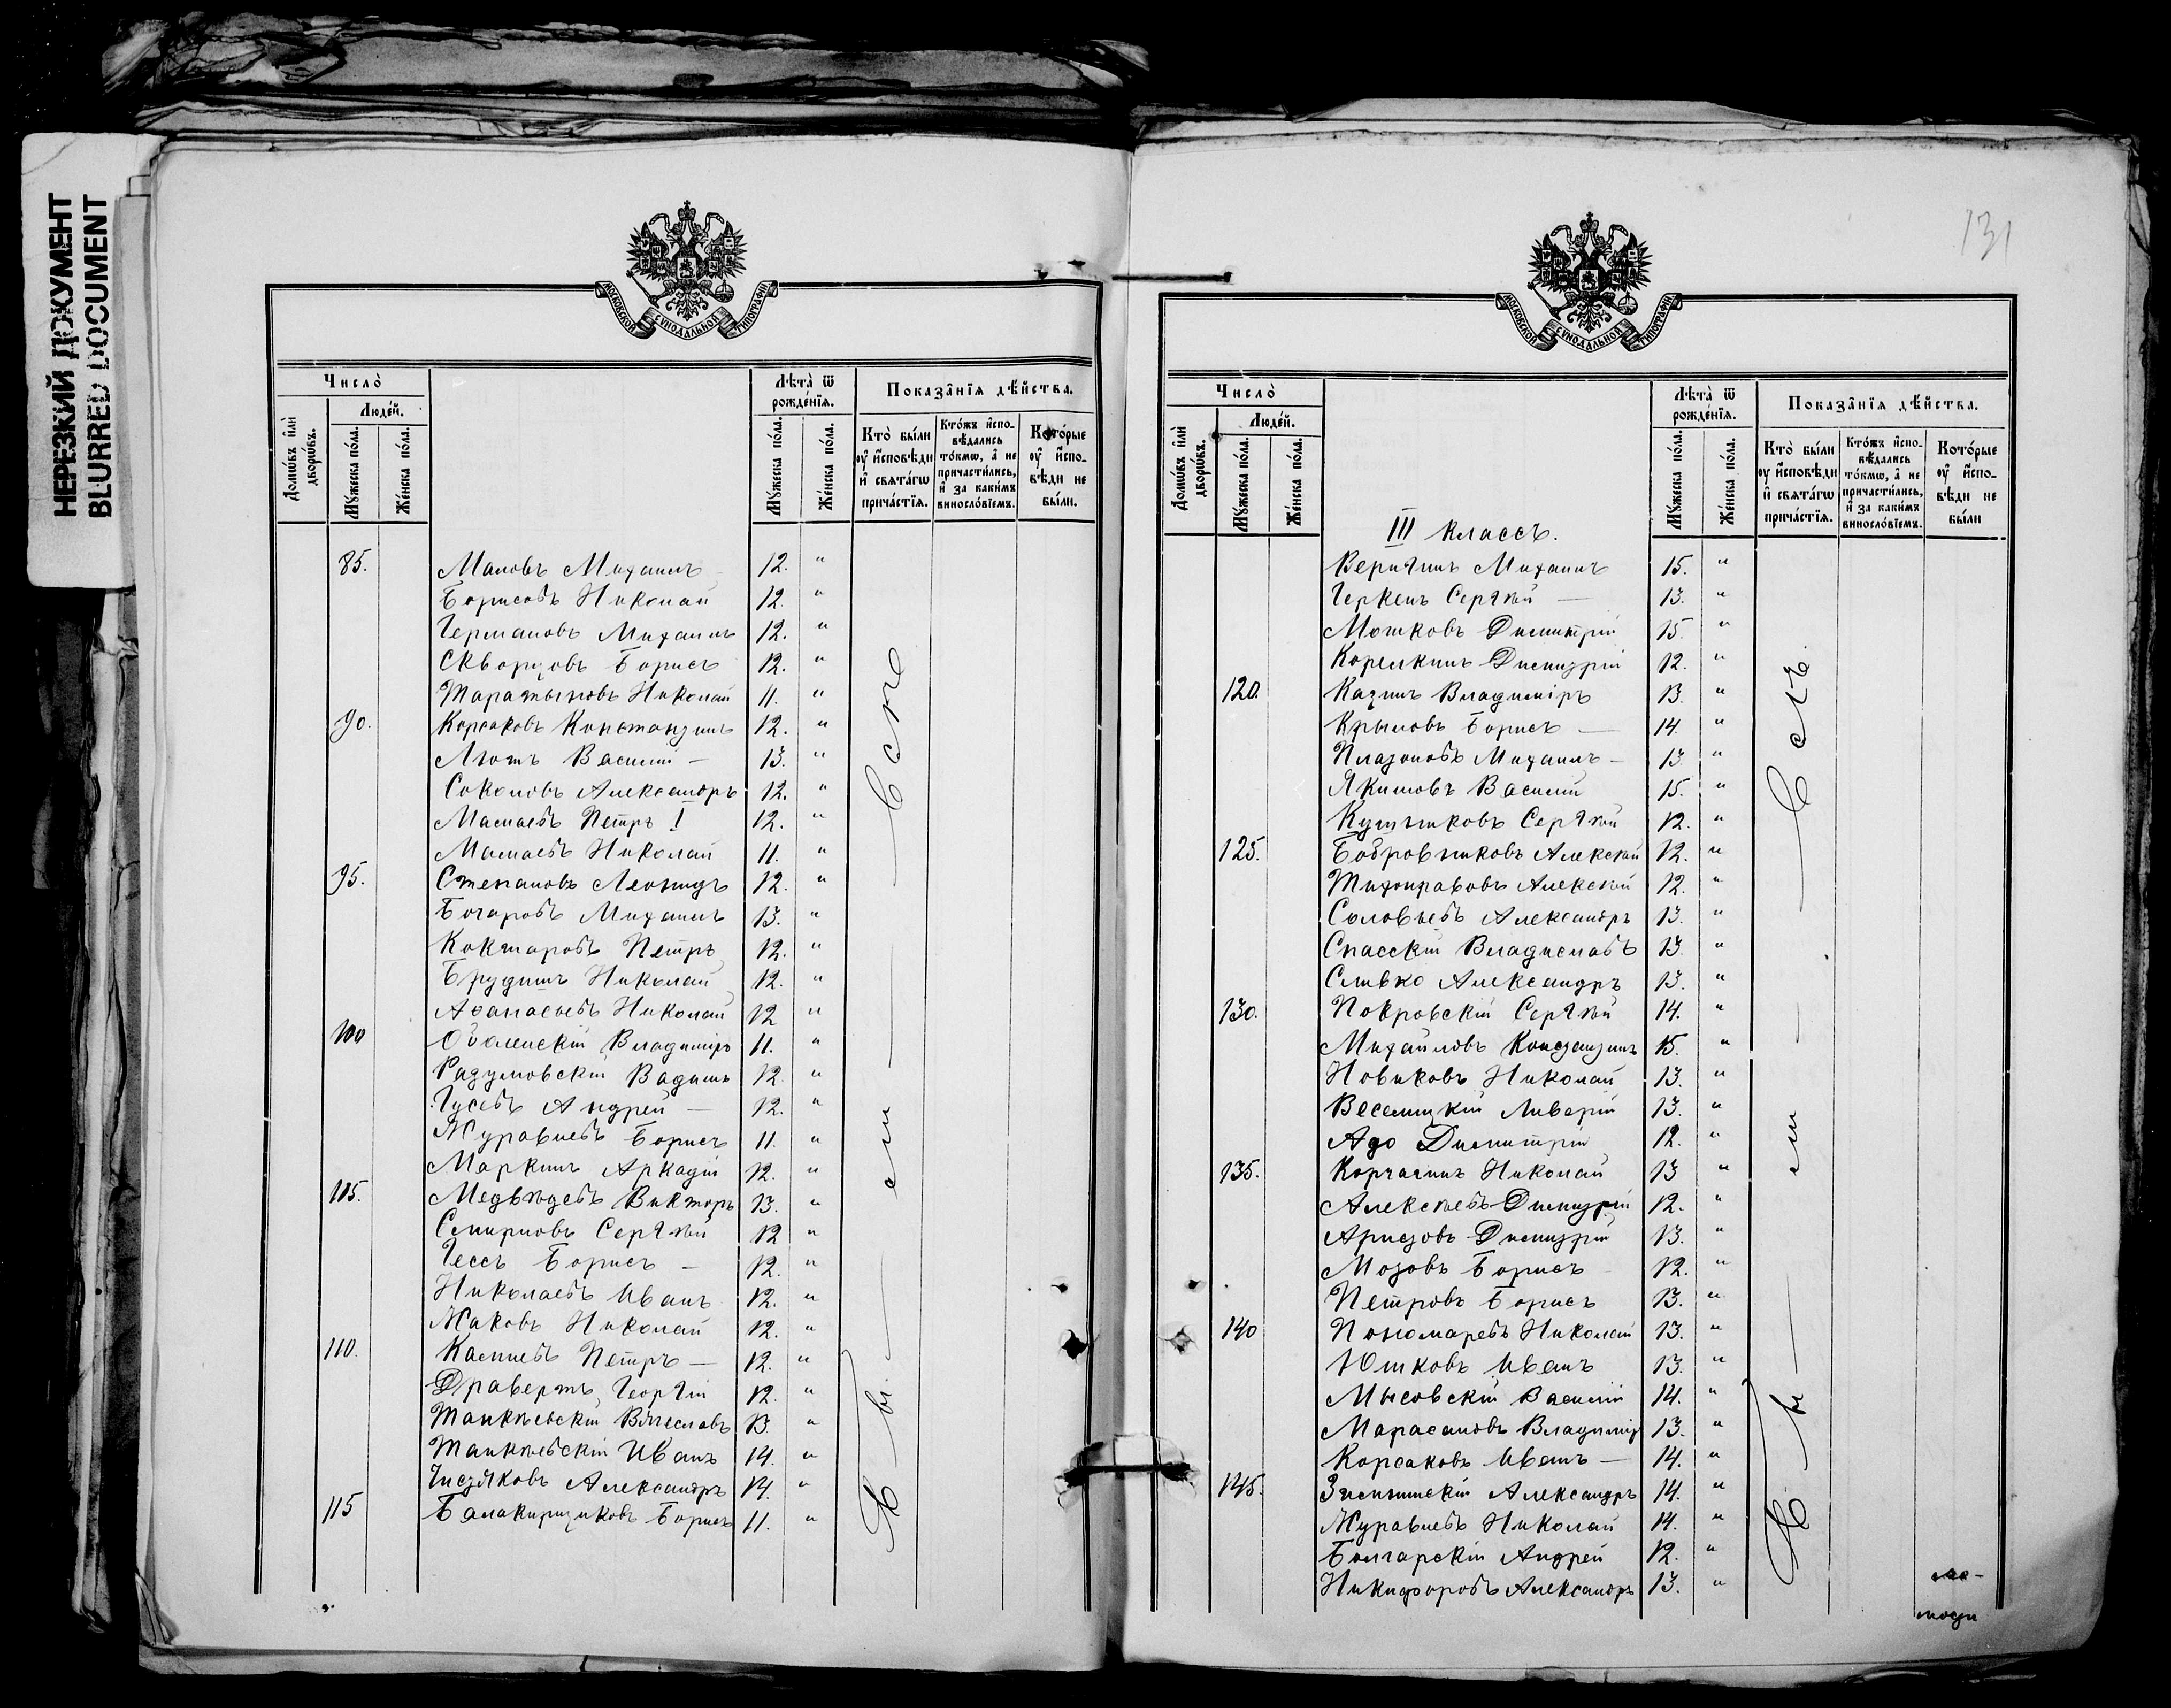 НЕРЕЗКИЙ ДОКУМЕНТ
BLURRED DOCUMENT
МОСКОВСКОЙ СѴНОДАЛЬНОЙ ТИПОГРАФІИ
Число̀
Людей.
Домѡвъ и҆лѝ дворѡвъ.
Мꙋжеска по́ла.
Же́нска по́ла.
Лѣта̀ ѿ рожде́нїѧ.
Мꙋжеска по́ла.
Же́нска по́ла.
Показа̑нїѧ дѣ́йства.
Кто̀ бы́ли ᲂу҆ и҆сповѣди и҆ свѧта́гѡ прича́стїѧ.
Кто́жъ и҆спо-вѣдались то́кмѡ, а҆ не причасти́лись, и҆ за каки́мъ винослові́емъ.
Кото́рые ᲂу҆ и҆спо-вѣди не бы́ли.
85. Маловъ Михаилъ 12. "
Борисовъ Николай 12. "
Германовъ Михаилъ 12. "
Скворцовъ Борисъ 12. "
Таратыновъ Николай 11. "
90. Корсаковъ Константинъ 12. "
Лютъ Василій — 13. "
Соколовъ Александръ 12. "
Мамаевъ Петръ I 12. "
Мамаевъ Николай 11. "
95. Степановъ Леонидъ 12. "
Бочаровъ Михаилъ 13. "
Кокшаровъ Петръ 12. "
Брудинъ Николай 12. "
Аѳанасьевъ Николай 12 "
100 Оболенскій Владиміръ 11. "
Радумовскій Вадимъ 12. "
Гусевъ Андрей — 12. "
Журавлевъ Борисъ 11. "
Маркинъ Аркадій 12. "
115. Медвѣдевъ Викторъ 13. "
Смирновъ Сергѣй 12 "
Гессъ Борисъ — 12. "
Николаевъ Иванъ 12. "
Жаковъ Николай 12. "
110. Каплевъ Петръ — 12. "
Дравертъ Георгій 12. "
Танкѣевскій Вячеславъ 13. "
Танкѣевскій Иванъ 14. "
Чистяковъ Александръ 14. "
115 Балакирщиковъ Борисъ 11. "
131
МОСКОВСКОЙ СѴНОДАЛЬНОЙ ТИПОГРАФІИ
Число̀
Людей.
Домѡвъ и҆лѝ дворѡвъ.
Мꙋжеска по́ла.
Же́нска по́ла.
Лѣта̀ ѿ рожде́нїѧ.
Мꙋжеска по́ла.
Же́нска по́ла.
Показа̑нїѧ дѣ́йства.
Кто̀ бы́ли ᲂу҆ и҆сповѣди и҆ свѧта́гѡ прича́стїѧ.
Кто́жъ и҆спо-вѣдались то́кмѡ, а҆ не причасти́лись, и҆ за каки́мъ винослові́емъ.
Кото́рые ᲂу҆ и҆спо-вѣди не бы́ли
III классъ.
Веригинъ Михаилъ 15. "
Геркенъ Сергѣй — 13. "
Мотковъ Дмитрій 15. "
Корелкинъ Дмитрій 12. "
120. Казинъ Владиміръ 13. "
Крыловъ Борисъ — 14. "
Платоновъ Михаилъ — 13. "
Якимовъ Василій 15. "
Сергѣй 12. "
125. Бобровниковъ Алексѣй 12. "
Тихонравовъ Алексѣй 12. "
Соловьевъ Александръ 13. "
Спасскій Владиславъ 13. "
Сливко Александръ 13. "
130. Покровскій Сергѣй 14. "
Михайловъ Константинъ 15. "
Новиковъ Николай 13. "
Веселицкій Ливерій 13. "
Адо Дмитрій 12. "
135. Корчагинъ Николай 13 "
Алексѣевъ Дмитрій 12. "
Аристовъ Дмитрій 13. "
Мозовъ Борисъ 12. "
Петровъ Борисъ 13. "
140 Пономаревъ Николай 13. "
Юшковъ Иванъ 13. "
Мысовскій Василій 14. "
Марасановъ Владиміръ 13. "
Корсаковъ Иванъ — 14. "
145. Александръ 14. "
Журавлевъ Николай 14. "
Болгарскій Андрей 12. "
Никифоровъ Александръ 13. "